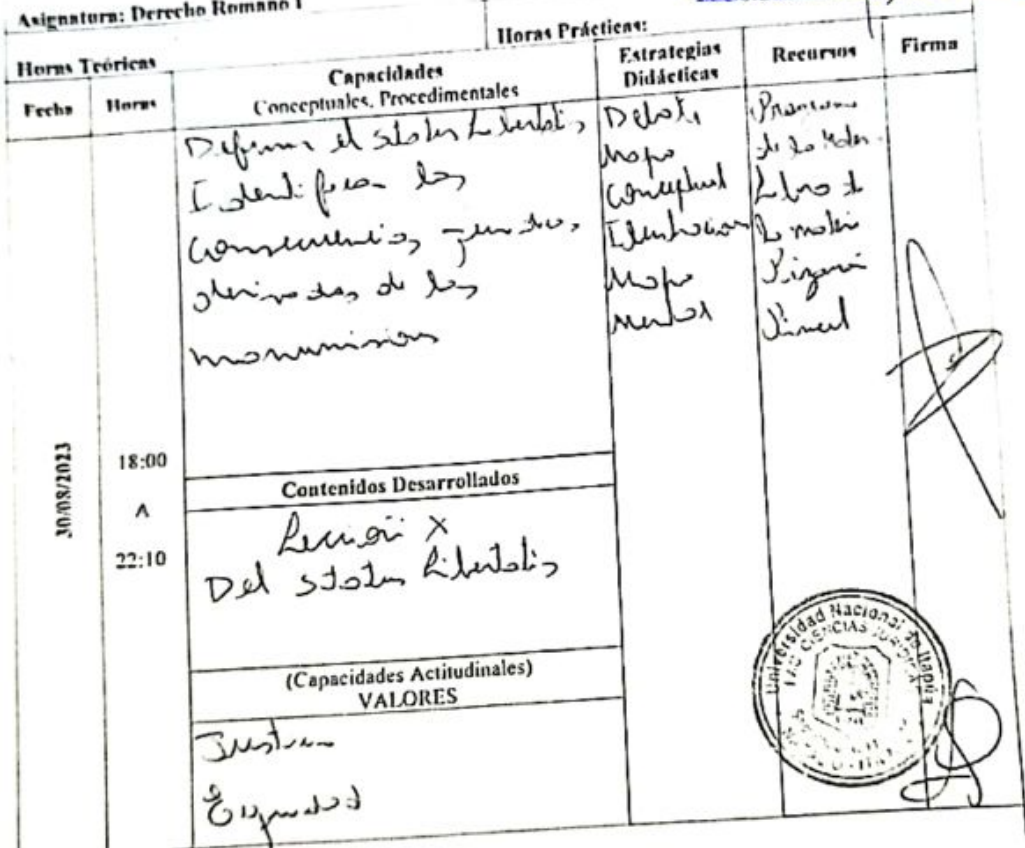 Asignatura: Derecho Romano I
Horas Teóricas
Horas Prácticas:
Fecha
Horas
Capacidades
Conceptuales, Procedimentales
Estrategias
Didácticas
Recursos
Firma
30/08/2023
18:00
A
22:10
Definir el Status Libertatis
Identificar las
consecuencias
derivadas de las
manumision
Debate
Mapa
Conceptual
Mapa
Mental
Programa
de la
Libro de
la materia
Pizarra
Pincel
Contenidos Desarrollados
Lección X
Del Status Libertatis
(Capacidades Actitudinales)
VALORES
Justicia
Equidad
Universidad Nacional de Itapúa